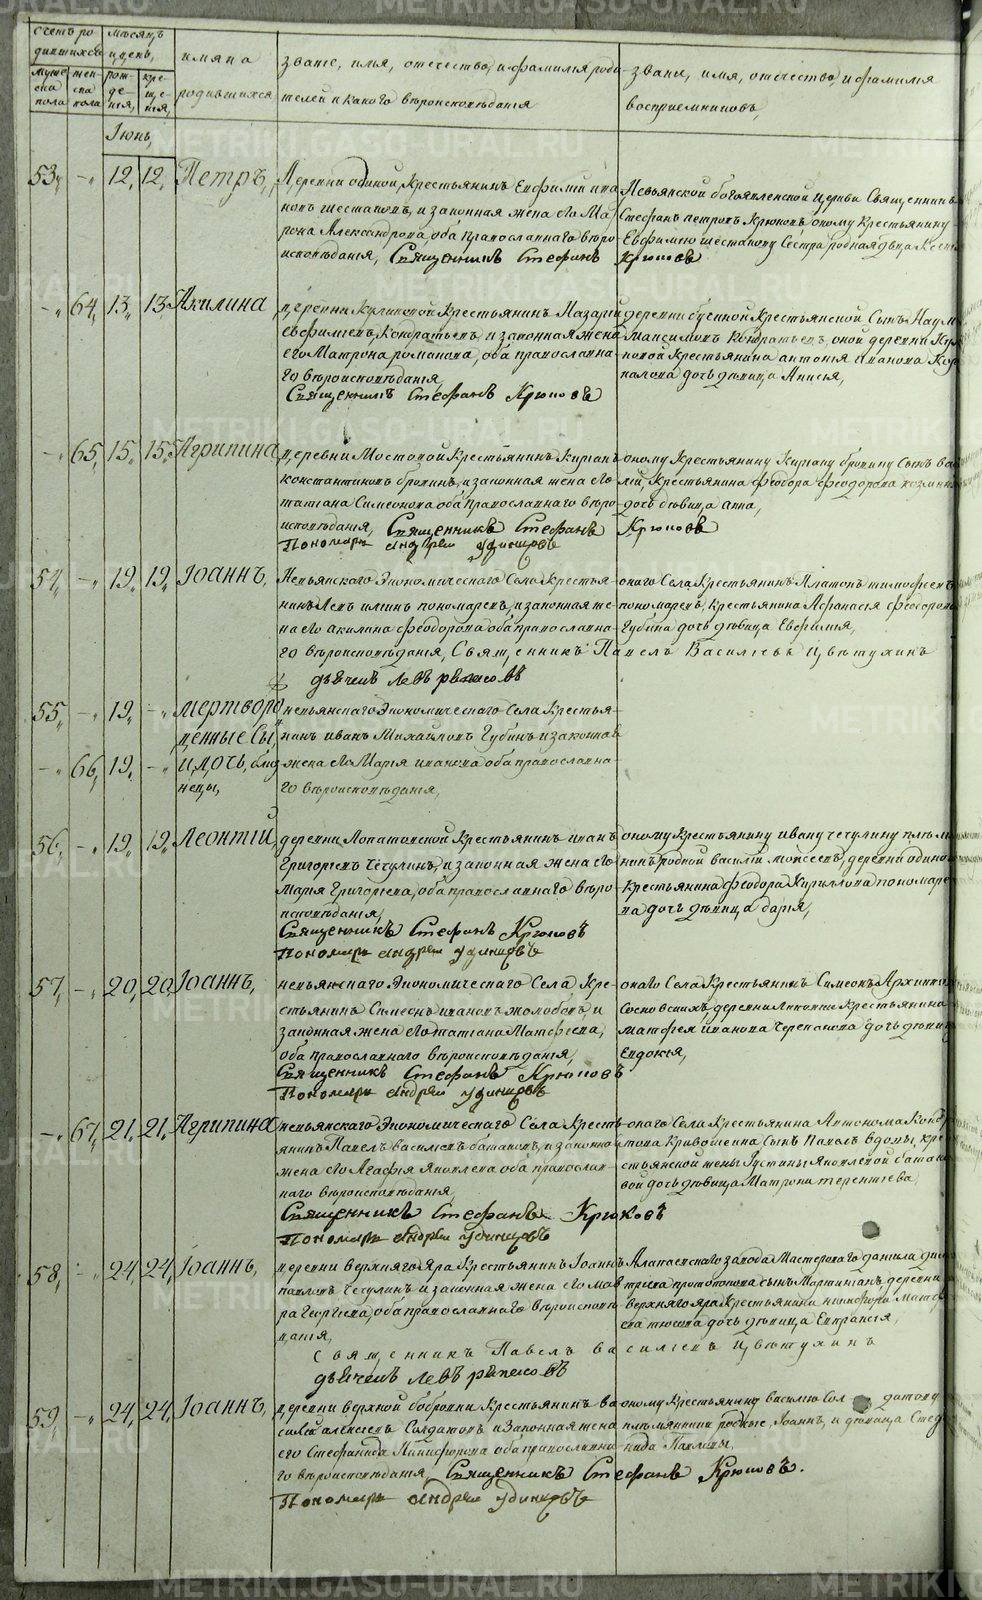 счетъ ро- месяцъ имяна званïе, имя, отечество, и фамилïя роди- званïе, имя, отечество, и фамилïя
дившихся и день, родившихся телей и какого вѣроисповѣданïя восприемниковъ,
муже- жен- рож- кре-
ска ска де- ще-
пола пола нïя, нïя,
Iюнь,
53, -„ 12, 12, Петръ,
Деревни одиной, Крестьянинъ Евфимïй ива
новъ шестаковъ, и законная жена его Ма
рона Александрова, оба православнаго вѣро
исповѣданïя, Священникъ Стефанъ Крюковъ
Невьянской богоявленской церкви Священникъ
Стефанъ петровъ Крюковъ, оному Крестьянину
Евфимïю шестакову Сестра родная дѣвица
-„ 64, 13, 13, Акилина
деревни Куликовой Крестьянинъ Назарïй
евфимïевъ, Кондратьевъ, и законная жена
его Матрона романова, оба православна-
го вѣроисповѣданïя,
Священникъ Стефанъ Крюковъ
деревни бучиной Крестьянской Сынъ Наумъ
Максимовъ Кондратьевъ, оной деревни
Крестьянина антонïя иванова
дочь дѣвица Анисья,
-„ 65, 15, 15, Агрипина
деревни Мостовой Крестьянинъ Кирïанъ
константиновъ бронинъ, и законная жена его
татïана Симеонова оба православнаго вѣро
исповѣданïя, Священникъ Стефанъ Крюковъ
Пономарь андрей удинцовъ
оному Крестьянину Кирïану бронину Сынъ ва
лïй, Крестьянина феодора феодорова
дочь дѣвица анна,
54, -„ 19, 19, Iоаннъ,
Невьянскаго Экономическаго Села Крестья-
нинъ Левъ илïинъ пономаревъ, и законная же-
на его акилина феодорова оба православна-
го вѣроисповѣданïя, Священникъ Павелъ Василïевъ Цвѣтухинъ
дьячекъ Левъ
онаго Села Крестьянинъ Платонъ тимофеевъ
пономаревъ, Крестьянина Афанасïя феодорова
Губина дочь дѣвица Евфимïя,
55, -„ 19, -„ мертворо
денные Сы
-„ 66, 19, -„ и дочь, близ
нецы,
невьянскаго Экономическаго Села Крестья-
нинъ иванъ Михайловъ Губинъ и законная
жена его Марïя иванова оба православна-
го вѣроисповѣданïя,
56, -„ 19, 19, Леонтïй,
деревни Лопатовской Крестьянинъ иванъ
Григорïевъ Чечулинъ, и законная жена его
Марïя Григорïева, оба православнаго вѣро
исповѣданïя,
Священникъ Стефанъ Крюковъ
Пономарь андрей удинцовъ
оному Крестьянину ивану чечулину племя
никъ родной василïй моисеевъ, деревни одино
Крестьянина феодора Кирыллова пономаре
ва дочь дѣвица дарïя,
57, -„ 20, 20, Iоаннъ,
невьянскаго Экономическаго Села Кре-
стьянинъ Симеонъ ивановъ жолобовъ, и
законная жена его татïана Матфïева,
оба православнаго вѣроисповѣданïя,
Священникъ Стефанъ Крюковъ
Пономарь андрей удинцовъ
онаго Села Крестьянинъ Симеонъ Архиппо
Сосновскихъ, деревни Крестьянина
матфея иванова Черепанова дочь дѣвиц
Евдокïя,
-„ 67, 21, 21, Агрипина
невьянскаго Экономическаго Села Кресть
янинъ Павелъ василïевъ батаковъ, и законна
жена его Агафïя Яковлева оба православ-
наго вѣроисповѣданïя,
Священникъ Стефанъ Крюковъ
Пономарь андрей удинцовъ
онаго Села Крестьянина Автонома Конд
това Кривошеина Сынъ Павелъ вдовы, кре
стьянской жены Iустины Яковлевой батако
вой дочь дѣвица Матрона терентïева,
58, -„ 24, 24, Iоаннъ,
деревни верхняго Яра Крестьянинъ Iоаннъ
павловъ Чечулинъ и законная жена его мав
ра Георгïева, оба православнаго вѣроисповѣ
данïя,
Священникъ Павелъ василïевъ Цвѣтухинъ
дьячекъ Левъ
Алапаевскаго завода Мастероваго данила
протопопова сынъ Мартинïанъ, деревни
верхняго яра Крестьянина никифора Матф
ева тюсова дочь дѣвица Евпраксïя,
59, -„ 24, 24, Iоаннъ,
деревни верхной бобровки Крестьянинъ ва
силïй алексеевъ Солдатовъ и Законная жена
его Стефанида Никифорова оба православна
го вѣроисповѣданïя, Священникъ Стефанъ Крюковъ.
Пономарь андрей удинцовъ
оному Крестьянину василïю Сол датову
племянники родные, Iоаннъ, и дѣвица Стеф
нида Павловы,
METRIKI.GASO-URAL.RU